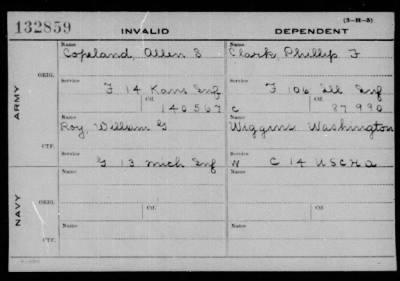 132859 INVALID DEPENDENT (3-H-5)
Name Name
Copeland, Allen B Clark, Phillip F
ORIG.
Service Service
F 14 Kans Inf F 106 Ill Inf
Ctf. Ctf.
140567 C 87990
ARMY
Name Name
Roy, William G Wiggins Washington
CTF.
Service Service
G 13 Mich Inf W C 14 USCHA
Name Name
ORIG. Ctf. Ctf.
NAVY
Name Name
CTF.